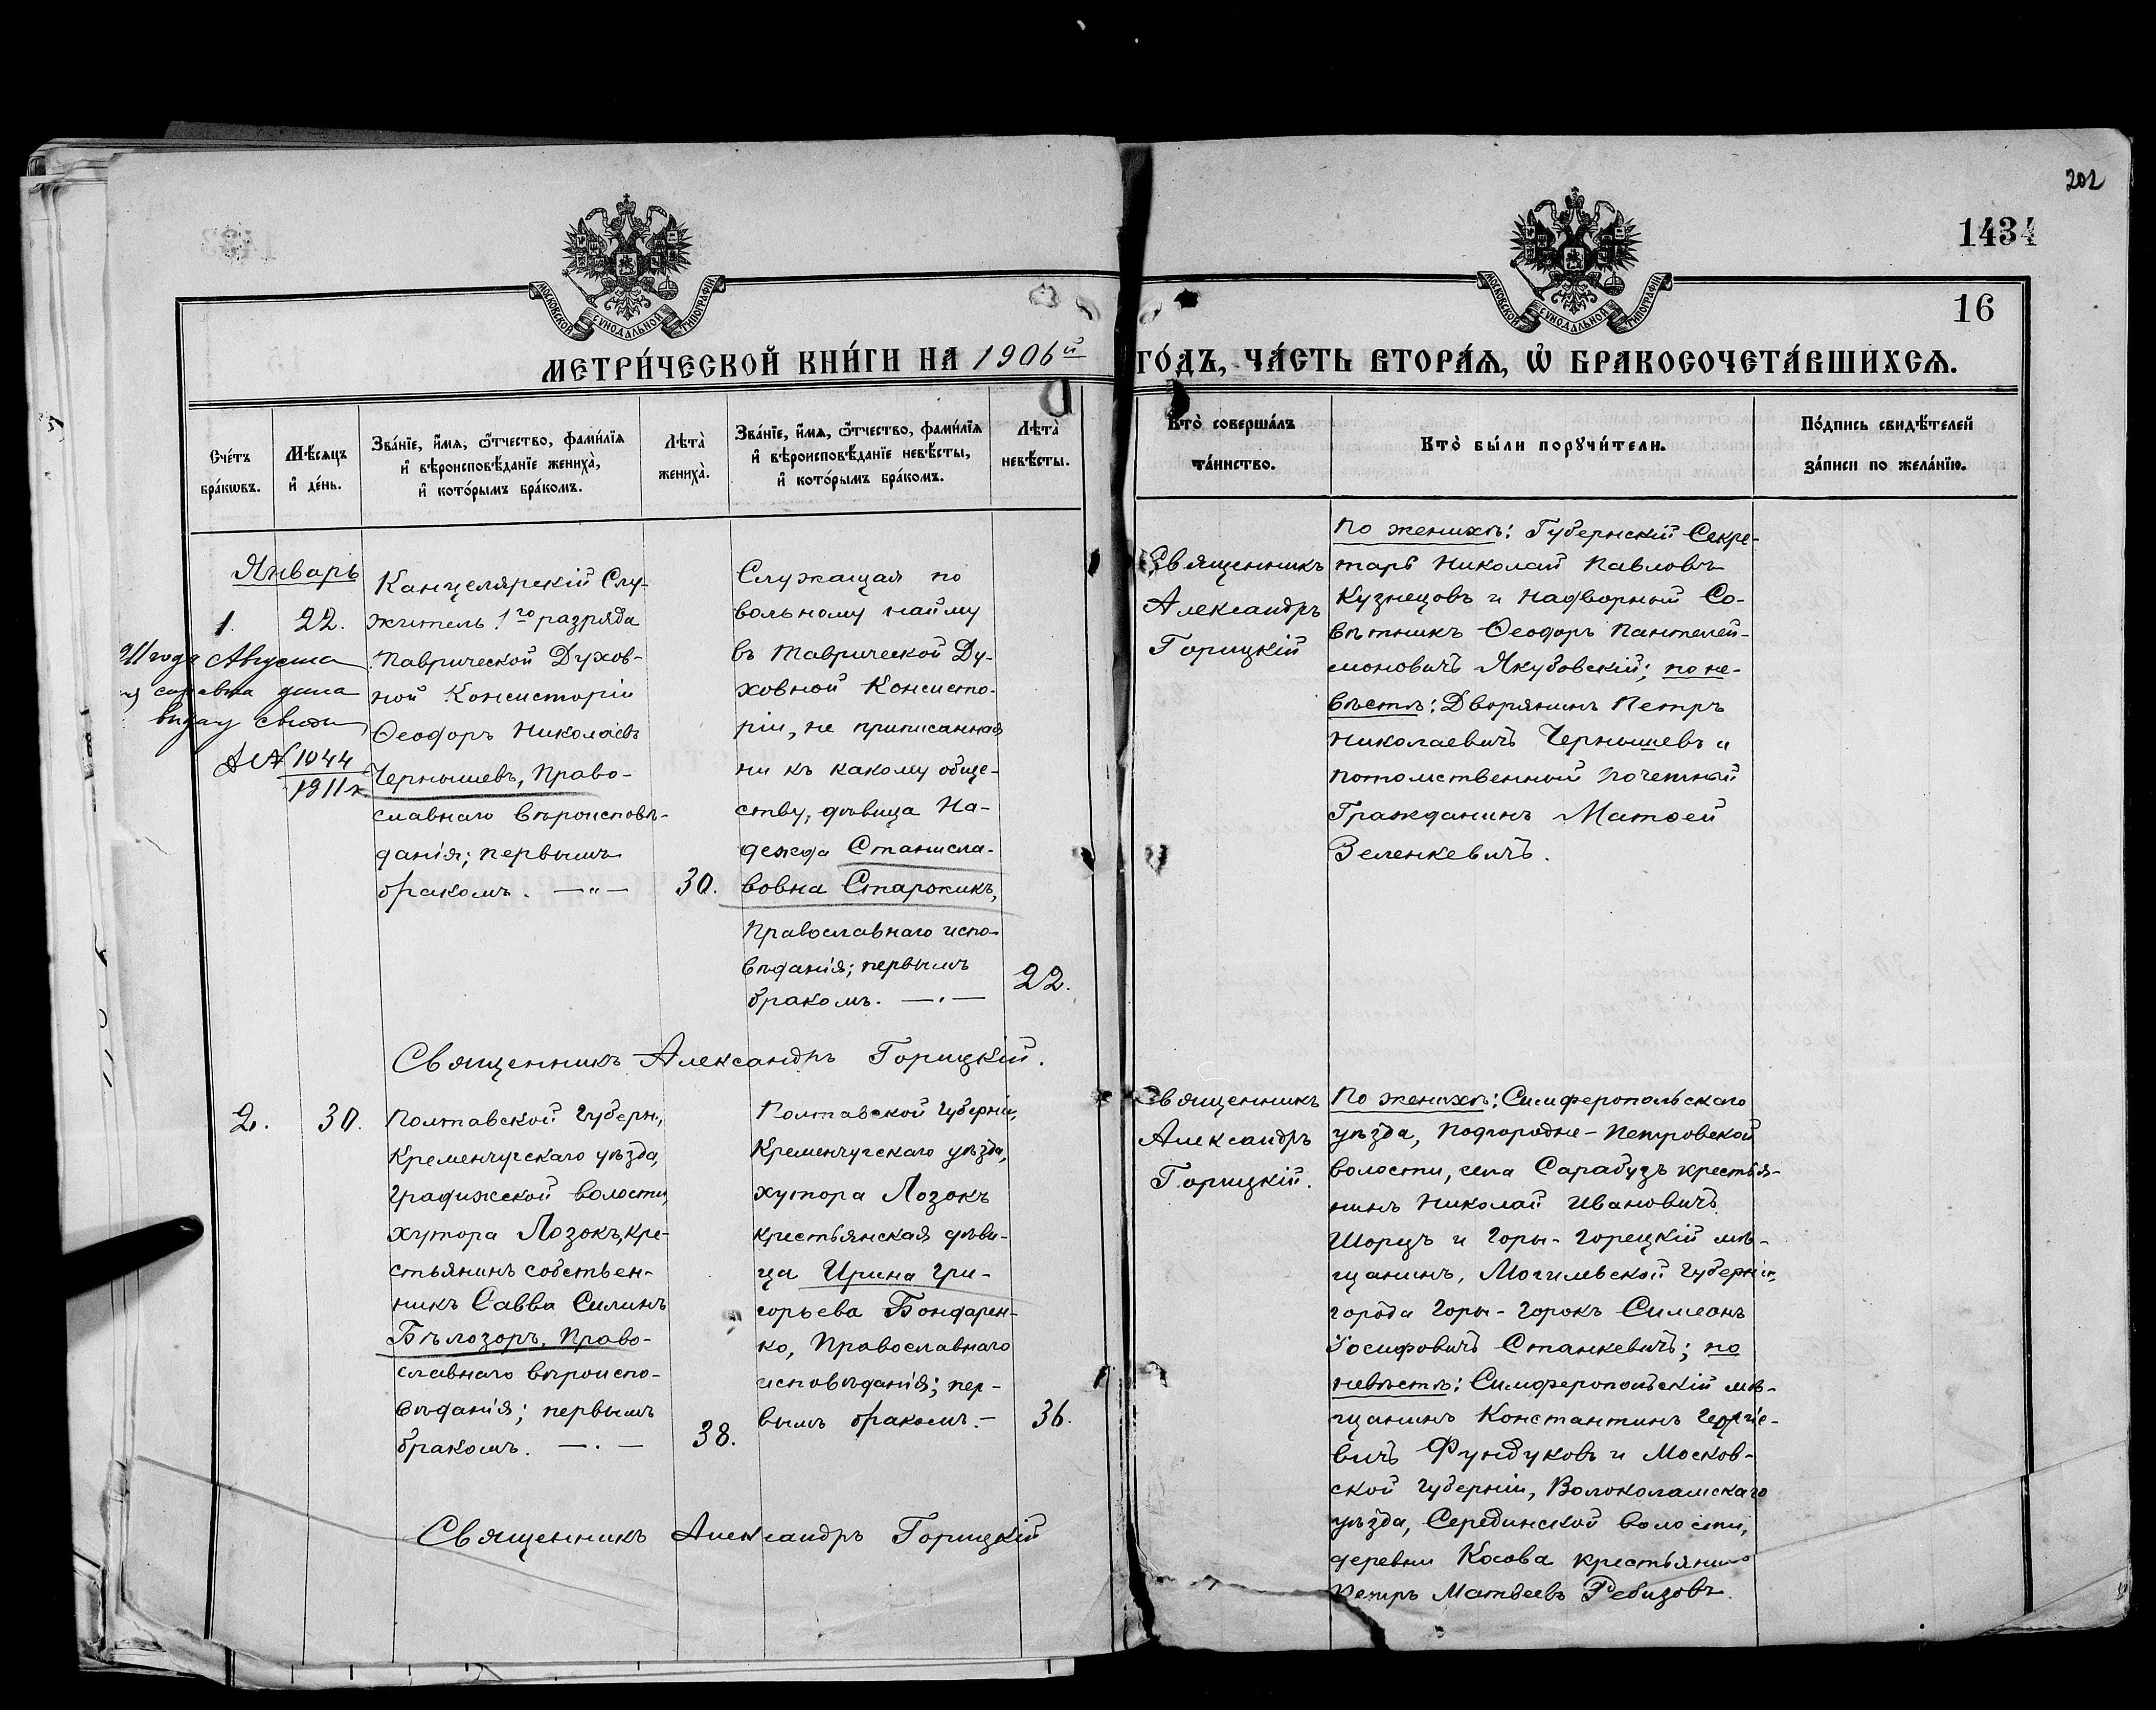 202
1434
16
МОСКОВСКОЙ СѴНОДАЛЬНОЙ ТИПОГРАФІИ
МОСКОВСКОЙ СѴНОДАЛЬНОЙ ТИПОГРАФІИ
МЕТРИ́ЧЕСКОЙ КНИ́ГИ НА 1906й ГО́ДЪ, ЧА́СТЬ ВТОРА́Ѧ, Ѡ҆ БРАКОСОЧЕТА́ВШИХСѦ.
Сче́тъ
бра́кѡвъ.
Мѣ́сѧцъ
и҆ де́нь.
Зва́нїе, и҆́мѧ, ѻ҆́тчество, фами́лїѧ
и҆ вѣроисповѣ́данїе жениха̀,
и҆ кото́рымъ бра́комъ.
Лѣта̀
жениха̀.
Зва́нїе, и҆́мѧ, ѻ҆́тчество, фами́лїѧ
и҆ вѣроисповѣ́данїе невѣ́сты,
и҆ кото́рымъ бра́комъ.
Лѣта̀
невѣ́сты.
Кто̀ соверша́лъ
та́инство.
Кто̀ бы́ли порꙋчи́тели.
По́дпись свидѣ́телей
за́писи по жела́нїю.
Январь
1.
22.
911 года Августа
дана
1044
1911 г.
Канцелярскій Слу-
житель 1го разряда
Таврической Духов-
ной Консисторіи
Ѳеодоръ Николаевъ
Чернышевъ, Право-
славнаго вѣроисповѣ-
данія; первымъ
бракомъ. — „ —
30.
Служащая по
вольному найму
въ Таврической Ду-
ховной Консисто-
ріи, не приписанная
ни къ какому обще-
ству, дѣвица На-
дежда Станисла-
вовна Старжикъ,
Православнаго испо-
вѣданія; первымъ
бракомъ. — . —
22.
Священникъ
Александръ
Горицкій
По женихѣ: Губернскій Секре-
тарь Николай Павловъ
Кузнецовъ и Надворный Со-
вѣтникъ Ѳеодоръ Пантелей-
моновичъ Якубовскій; по не-
вѣстѣ: Дворянинъ Петръ
Николаевичъ Чернышевъ и
потомственный почетный
Гражданинъ Матѳей
Зеленкевичъ.
Священникъ Александръ Горицкій.
2.
30.
Полтавской Губерн.,
Кременчугскаго уѣзда,
Градижской волости,
хутора Лозокъ, кре-
стьянинъ собствен-
никъ Савва Силинъ
Бѣлозоръ, Право-
славнаго вѣроиспо-
вѣданія; первымъ
бракомъ. — . —
38.
Полтавской Губерніи,
Кременчугскаго уѣзда,
хутора Лозокъ
крестьянская дѣви-
ца Ирина Гри-
горьева Бондарен-
ко, Православнаго
исповѣданія; пер-
вымъ бракомъ. —
36.
Священникъ
Александръ
Горицкій.
По женихѣ: Симферопольскаго
уѣзда, Подгородне-Петровской
волости, села Сарабузъ крестья-
нинъ Николай Ивановичъ
Шорцъ и Горы-Горецкій мѣ-
щанинъ, Могилевской Губерніи,
города Горы-Горокъ Симеонъ
Іосифовичъ Станкевичъ; по
невѣстѣ: Симферопольскій мѣ-
щанинъ Константинъ Георгіе-
вичъ Фундуковъ и Москов-
ской Губерніи, Волоколамскаго
уѣзда, Серединской волости,
деревни Косова крестьянинъ
Петръ Матвеевъ Ребизовъ.
Священникъ Александръ Горицкій